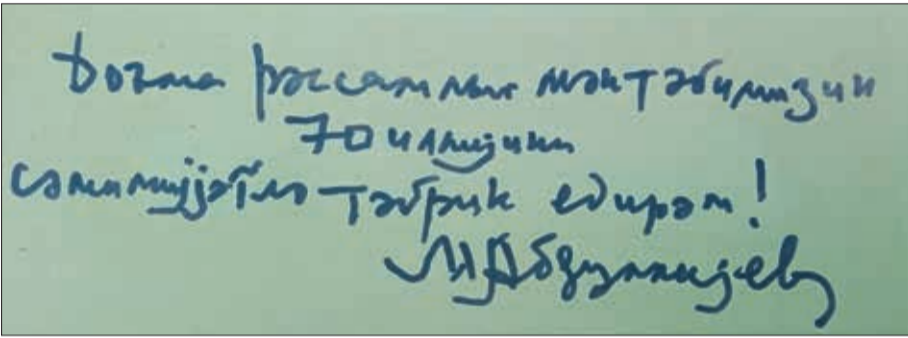 Доғма рәссамлыг мәктәбимизин
70 иллијини
сәмимијјәтлә тәбрик едирәм!
М Абдуллајев